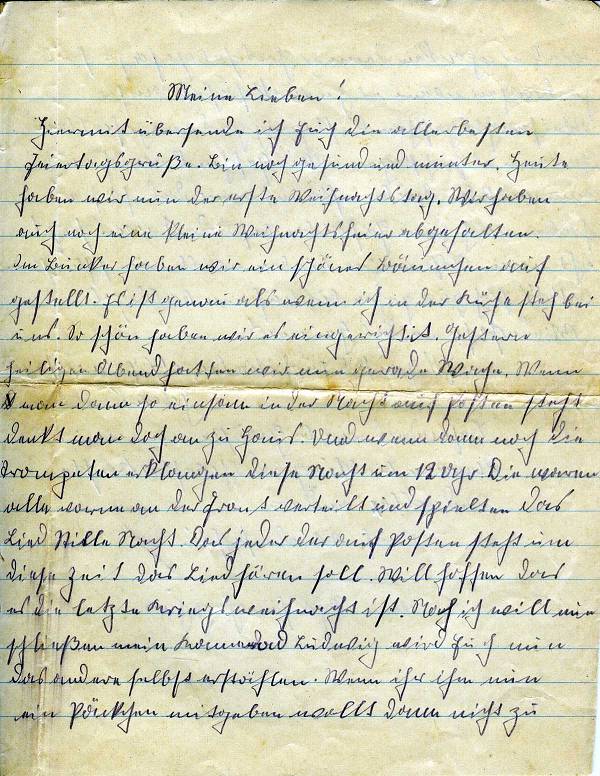 Meine Lieben!
Hiermit übersende ich Euch die allerbesten
Feiertagsgrüße. Bin noch gesund und munter. Heute
haben wir nun der erste Weihnachtstag. Wir haben
auch noch eine kleine Weihnachtsfeier abgehalten.
Im Bunker haben wir ein schönes Bäumchen auf
gestellt. Es ist genau als wenn ich in der Küche steh bei
uns. So schön haben wir es eingerichtet. Gestern
heiligen Abend hatten wir nun gerade Wache. Wenn
man dann so einsam in der Nacht auf Posten steht
denkt man doch an zu Haus. Und wenn dann noch die
Trompeten erklangen diese Nacht um 12 Uhr Die waren
alle vorne an der Front verteilt und spielten das
Lied Stille Nacht. Das jeder der auf Posten steht um
diese Zeit das Lied hören soll. Will hoffen das
es die letzte Kriegsweihnacht ist. Noch ich will nun
schließen mein Kamerad Ludwig wird Euch nun
das andere selbst erzählen. Wenn ihr ihm nun
ein Päckchen mitgeben wollt dann nicht zu